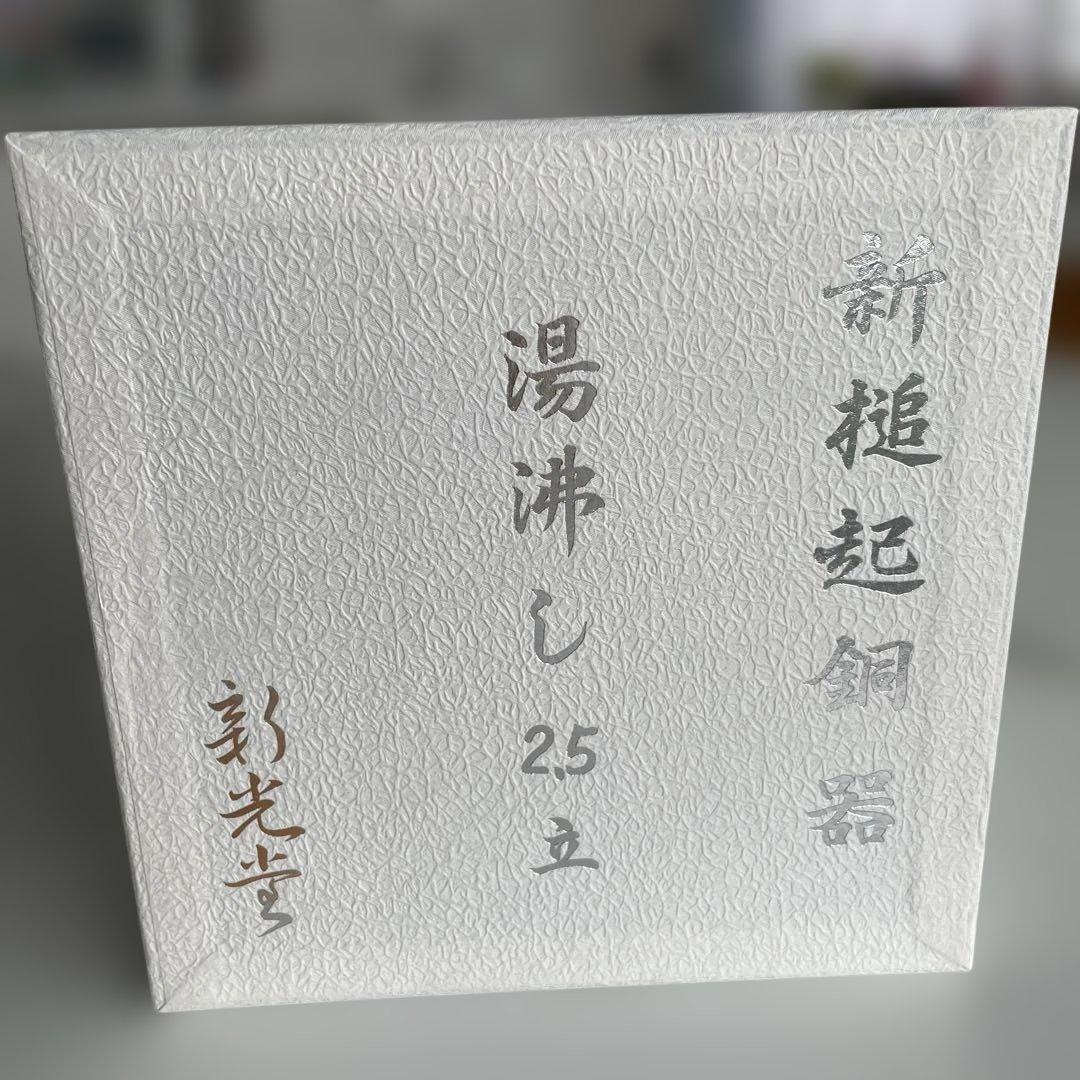 新槌起銅器
湯沸し2.5立
新光堂